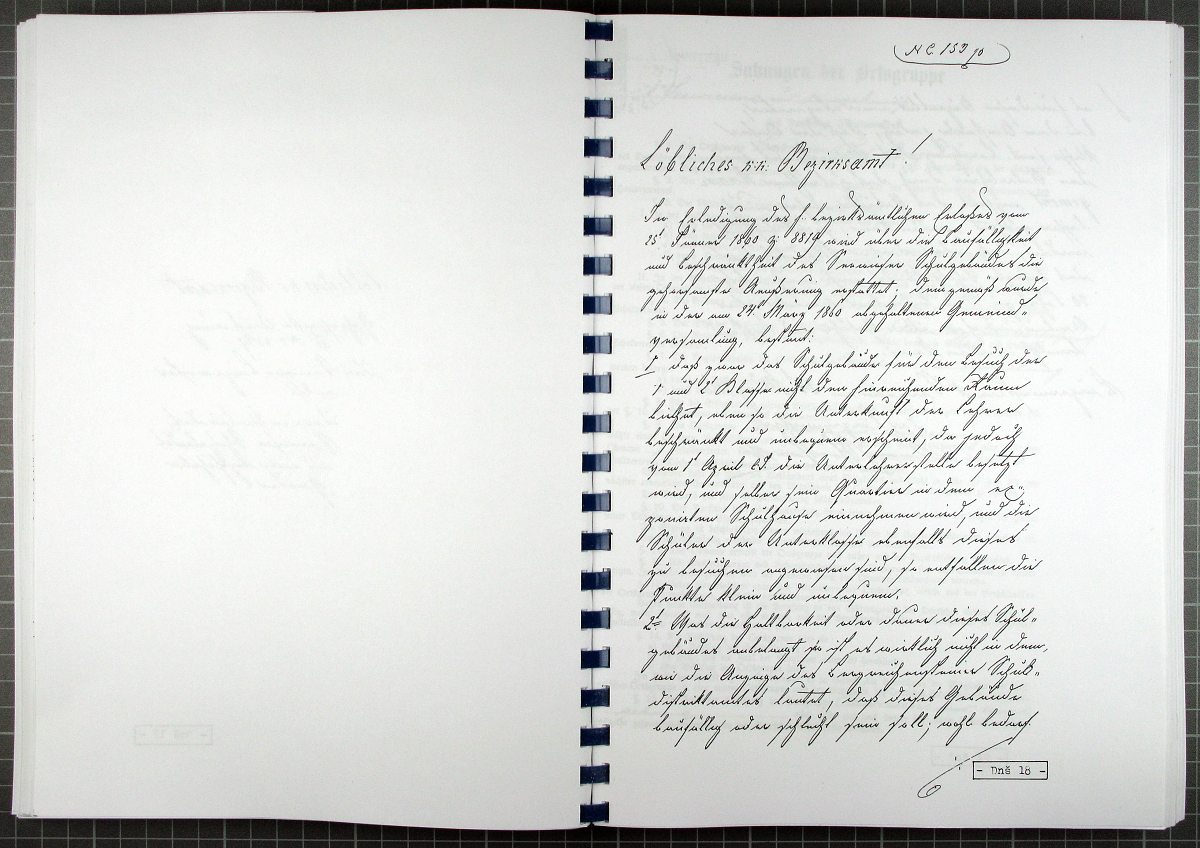 N C. 159/10
Löbliches k. k. Bezirksamt!
In Erledigung des h. bezirksämtlichen Erlaßes vom
25t Jänner 1860 z: 8819 wird über die Baufälligkeit
und Beschränktheit des Seewieser Schulgebäudes die
gehorsamste Aeußerung erstattet: demgemäß wurde
in der am 24t März 1860 abgehaltenen Gemeind-
versamlung, bestimt:
1 daß zwar das Schulgebäude für den Besuch der
1 und 2t Klasse nicht den hinreichenden Raum
biethet, eben so die Unterkunft der Lehrer
beschränkt und unbequem erscheint, da jedoch
vom 1t April die Unterlehrerstelle besetzt
wird, und selber sein Quartier in dem ex-
ponirten Schulhause einnehmen wird, und die
Schüler der Unterklasse ebenfalls dieses
zu besuchen angewiesen sind, so entfallen die
Punkte klein und unbequem.
2t Was die Haltbarkeit oder dauer dieses Schul-
gebäudes anbelangt so ist es wirklich nicht in dem,
wie die Anzeige des Bergreichensteiner Schul-
distriktamtes lautet, daß dieses Gebäude
baufällig oder schlecht sein soll; wohl bedarf
./.
- Dnš 18 -